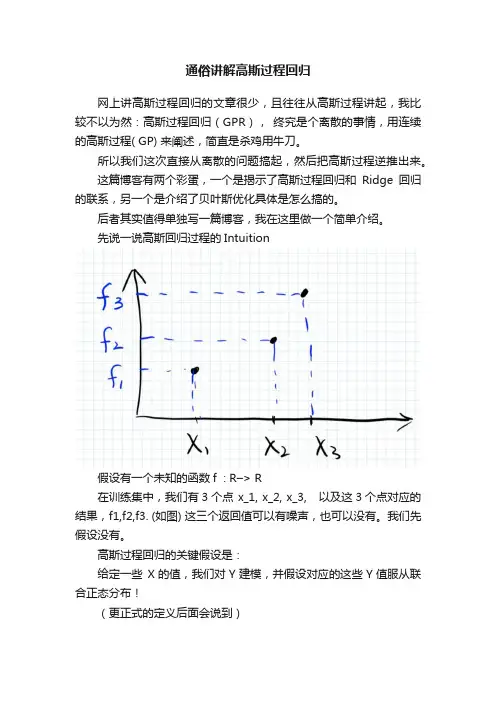 通俗讲解高斯过程回归
网上讲高斯过程回归的文章很少，且往往从高斯过程讲起，我比
较不以为然：高斯过程回归（GPR）， 终究是个离散的事情，用连续
的高斯过程( GP) 来阐述，简直是杀鸡用牛刀。
所以我们这次直接从离散的问题搞起，然后把高斯过程逆推出来。
这篇博客有两个彩蛋，一个是揭示了高斯过程回归和 Ridge 回归
的联系，另一个是介绍了贝叶斯优化具体是怎么搞的。
后者其实值得单独写一篇博客，我在这里做一个简单介绍。
先说一说高斯回归过程的 Intuition
f3
f2
f1
X1 X2 X3
假设有一个未知的函数 f : R–> R
在训练集中，我们有 3 个点 x_1, x_2, x_3, 以及这 3 个点对应的
结果，f1,f2,f3. (如图) 这三个返回值可以有噪声，也可以没有。我们先
假设没有。
高斯过程回归的关键假设是：
给定一些 X 的值，我们对 Y 建模，并假设对应的这些 Y 值服从联
合正态分布！
（更正式的定义后面会说到）